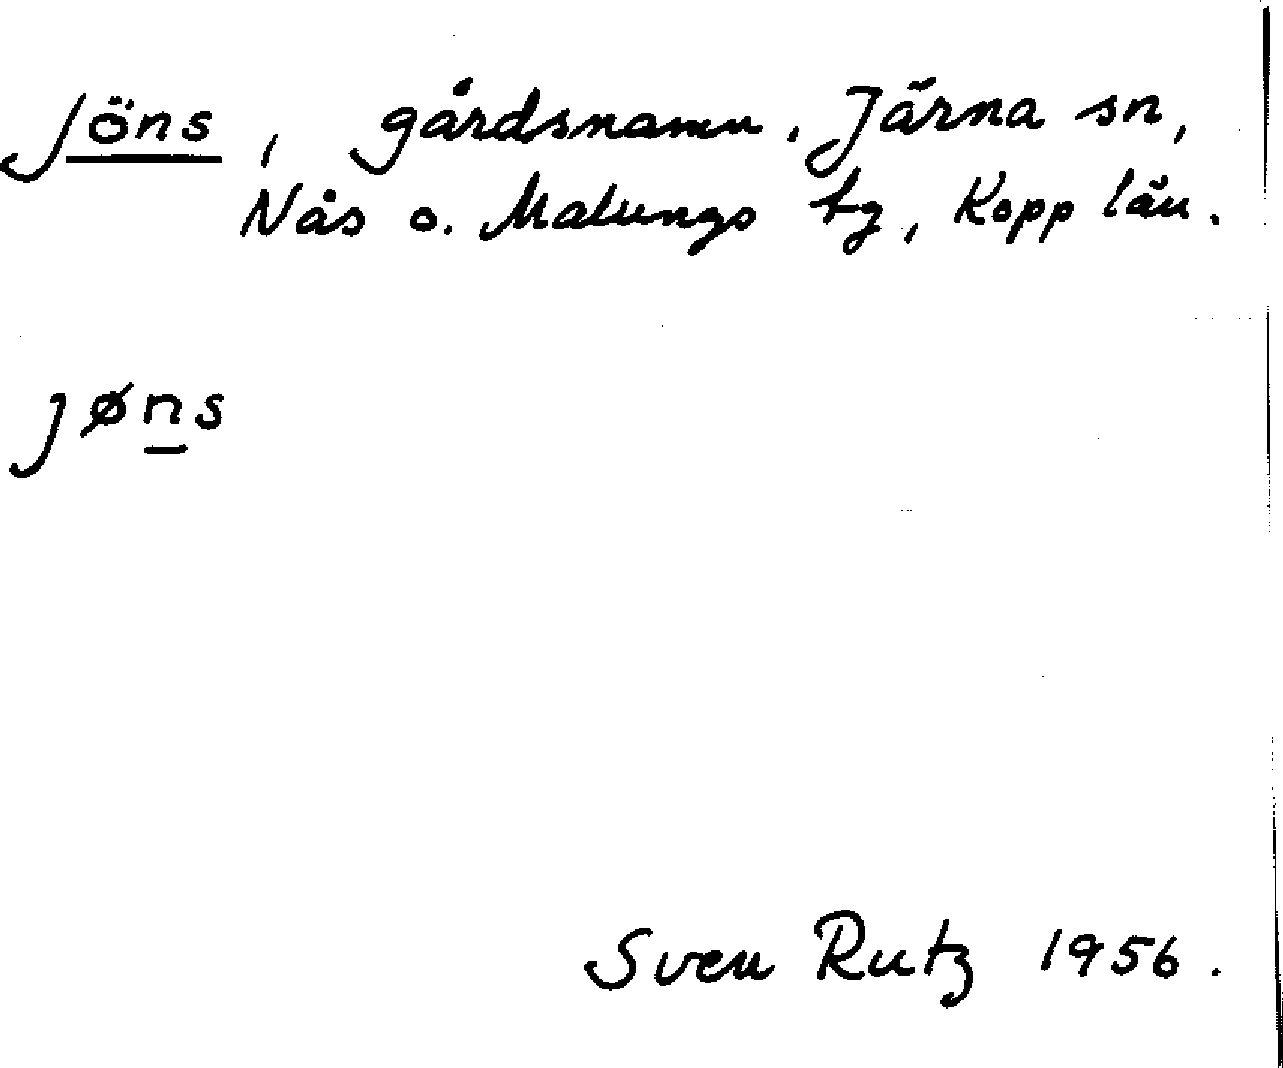 Jöns, gårdsnamn. Järna sn,
Nås o. Malungs tg, Kopp län.
jøns
Sven Rutz 1956.